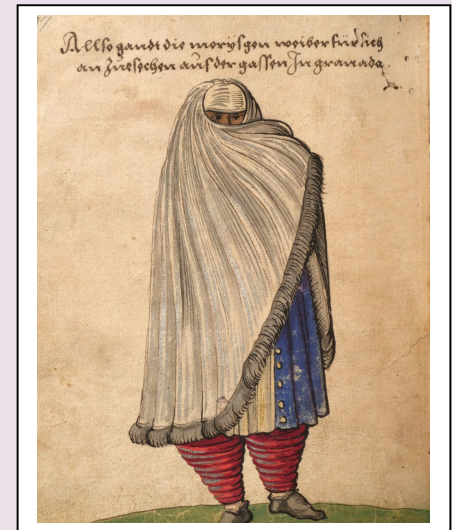 Allso gandt die morÿsgen weiber für sich
an Züesechen aüf der gassen In granada